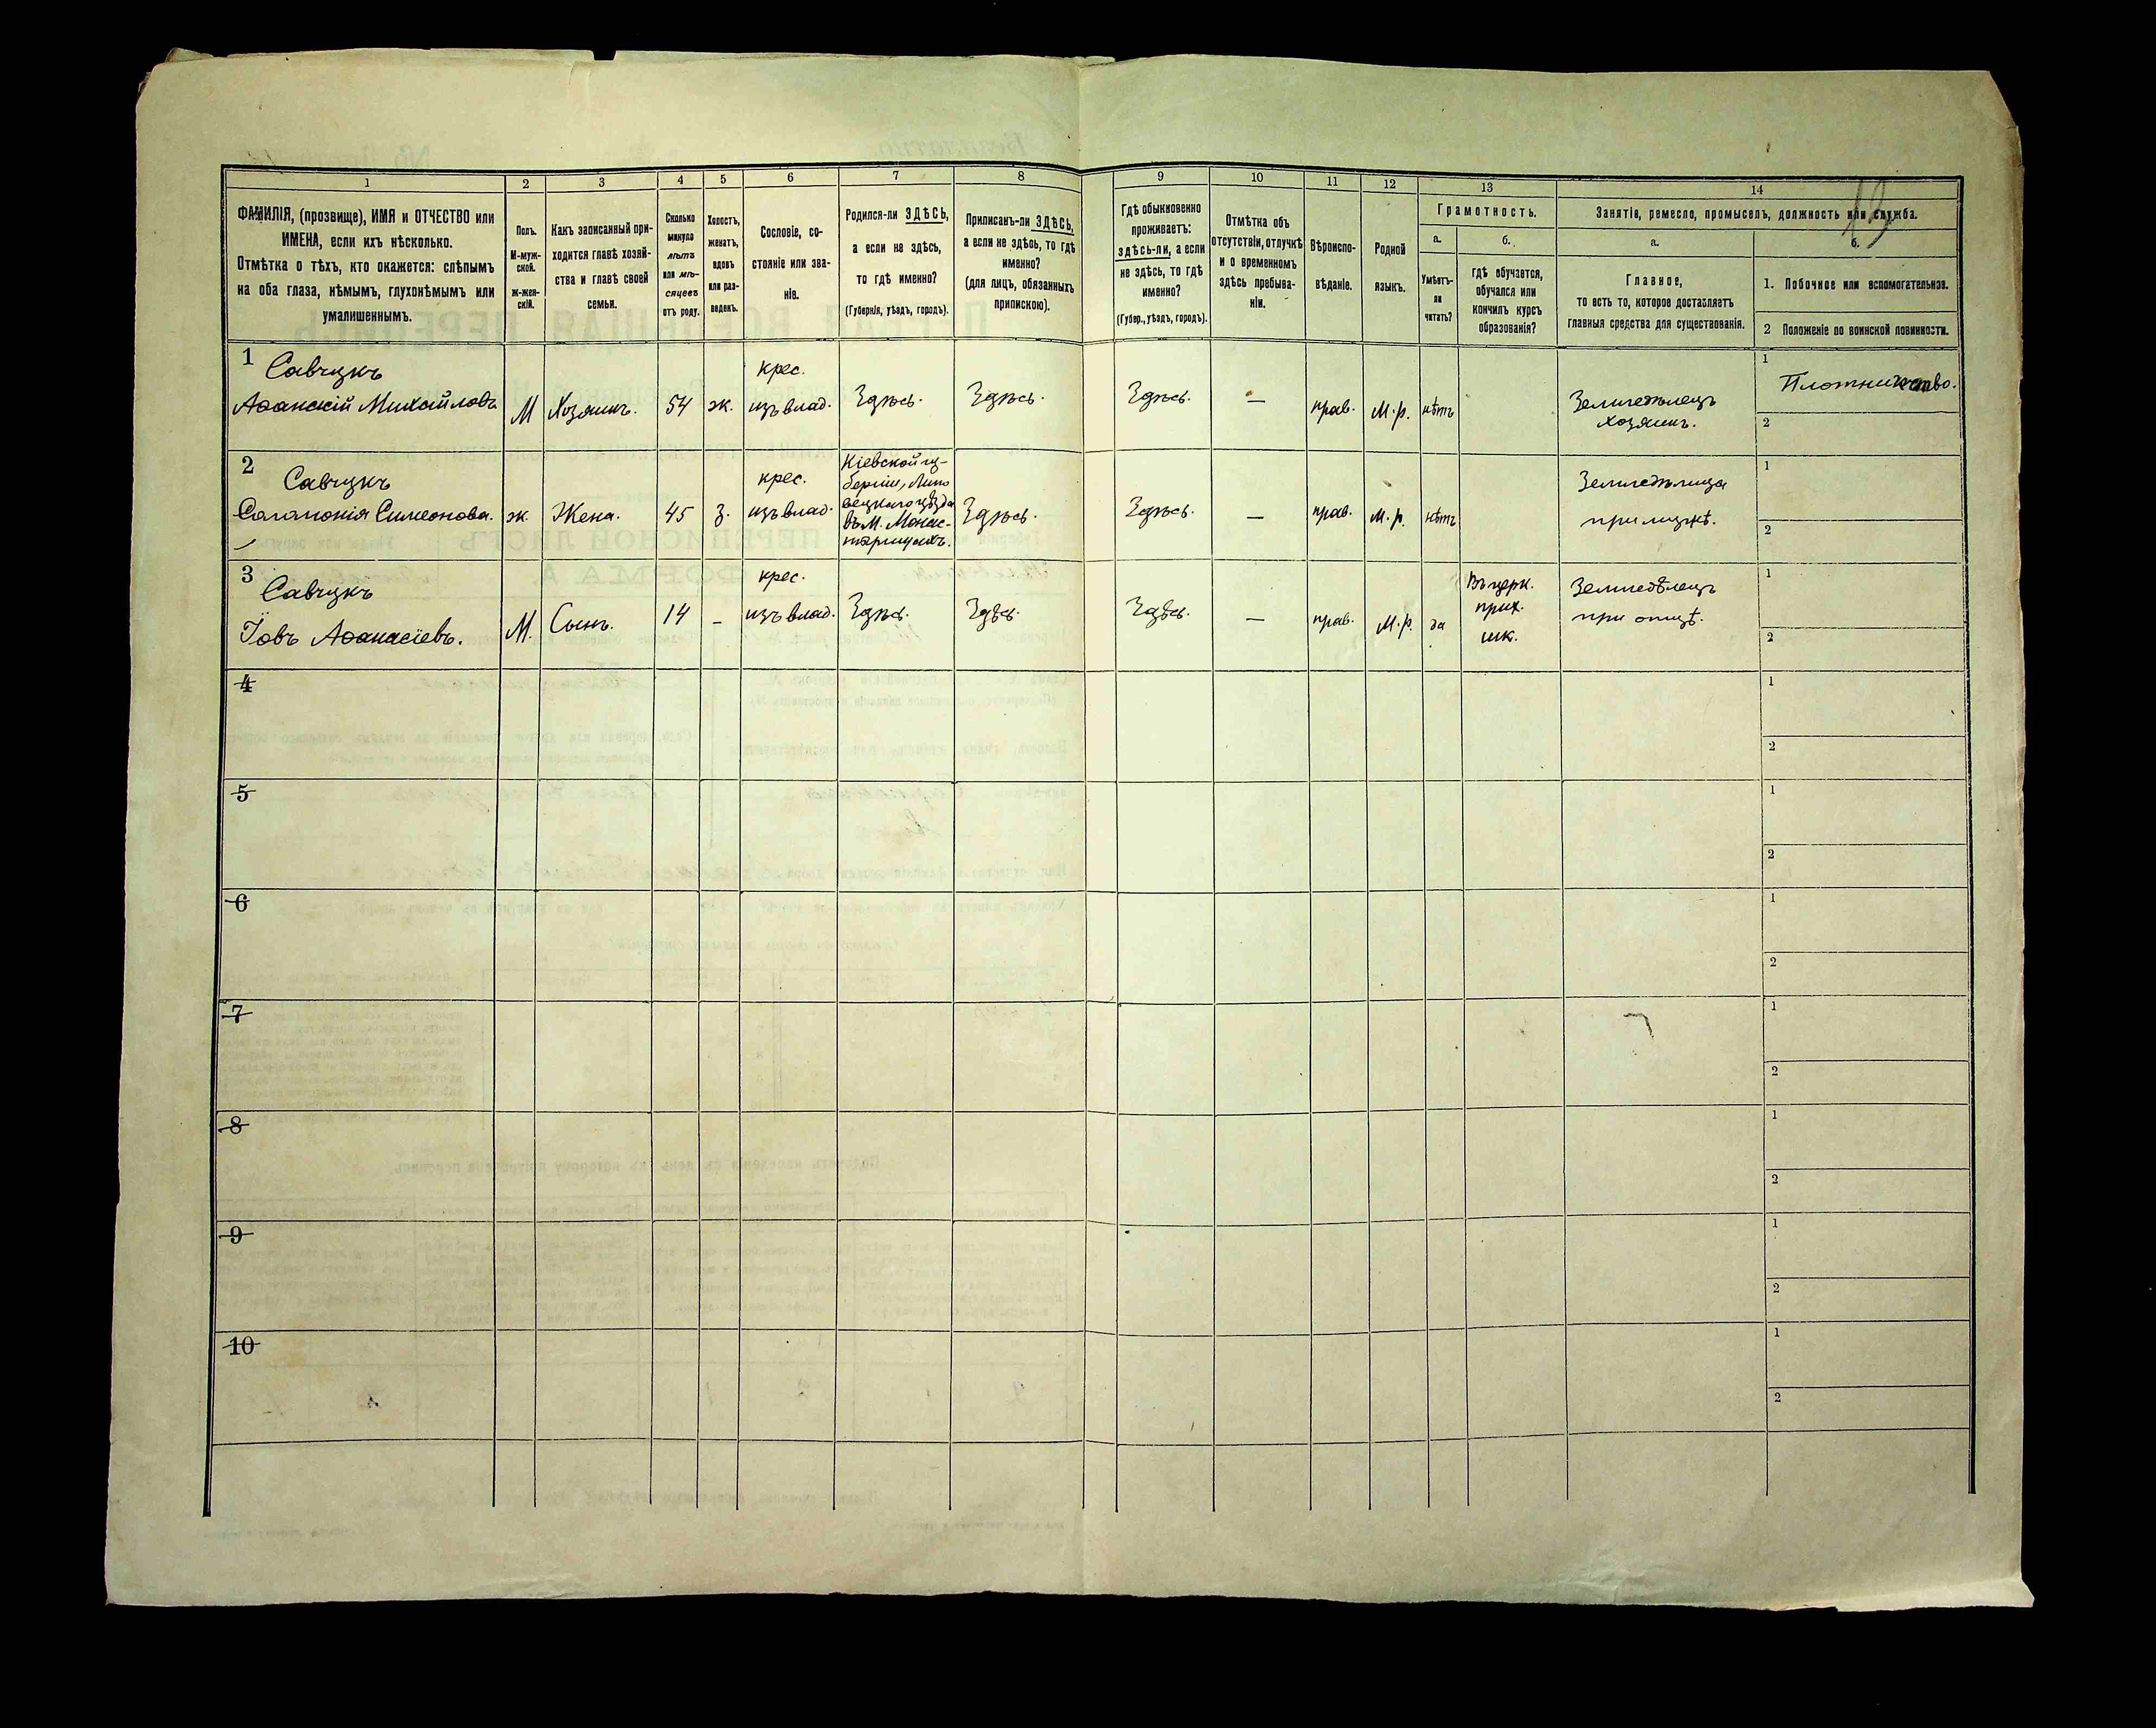 13
1
2
3
4
5
6
7
8
9
10
11
12
13
14
ФАМИЛІЯ, (прозвище), ИМЯ и ОТЧЕСТВО или
ИМЕНА, если ихъ нѣсколько.
Отмѣтка о тѣхъ, кто окажется: слѣпымъ
на оба глаза, нѣмымъ, глухонѣмымъ или
умалишеннымъ.
Полъ.
М-муж-
ской.
ж-жен-
скій.
Какъ записанный при-
ходится главѣ хозяй-
ства и главѣ своей
семьи.
Сколько
минуло
лѣтъ
или мѣ-
сяцевъ
отъ роду.
Холостъ,
женатъ,
вдовъ
или раз-
веденъ.
Сословіе, со-
стояніе или зва-
ніе.
Родился-ли ЗДѢСЬ,
а если не здѣсь,
то гдѣ именно?
(Губернія, уѣздъ, городъ).
Приписанъ-ли ЗДѢСЬ,
а если не здѣсь, то гдѣ
именно?
(для лицъ, обязанныхъ
припискою).
Гдѣ обыкновенно
проживаетъ:
здѣсь-ли, а если
не здѣсь, то гдѣ
именно?
(Губер., уѣздъ, городъ).
Отмѣтка объ
отсутствіи, отлучкѣ
и о временномъ
здѣсь пребыва-
ніи.
Вѣроиспо-
вѣданіе.
Родной
языкъ.
Грамотность.
а.
Умѣетъ-
ли
читать?
б.
гдѣ обучается,
обучался или
кончилъ курсъ
образованія?
Занятіе, ремесло, промыселъ, должность или служба.
а.
Главное,
то есть то, которое доставляетъ
главныя средства для существованія.
б.
1. Побочное или вспомогательное.
2 Положеніе по воинской повинности.
1 Савчукъ
Аѳанасій Михайловъ
М
Хозяинъ.
54
ж.
крес.
изъ влад.
Здѣсь.
Здѣсь.
Здѣсь.
—
прав.
М.р.
нѣтъ
Земледѣлецъ
хозяинъ.
1 Плотничество.
2
2 Савчукъ
Соломонія Симеонова.
ж.
Жена.
45
з.
крес.
изъ влад.
Кіевской гу-
берніи, Липо
вецкаго уѣзда
въ м. Монас-
тырищахъ.
Здѣсь.
Здѣсь.
—
прав.
М.р.
нѣтъ
Земледѣлица
при мужѣ.
1
2
3 Савчукъ
Іовъ Аѳанасіевъ.
М.
Сынъ.
14
-
крес.
изъ влад.
Здѣсь.
Здѣсь.
Здѣсь.
—
прав.
М.р.
да
Въ церк.
прих.
шк.
Земледѣлецъ
при отцѣ.
1
2
4
1
2
5
1
2
6
1
2
7
1
2
8
1
2
9
1
2
10
1
2